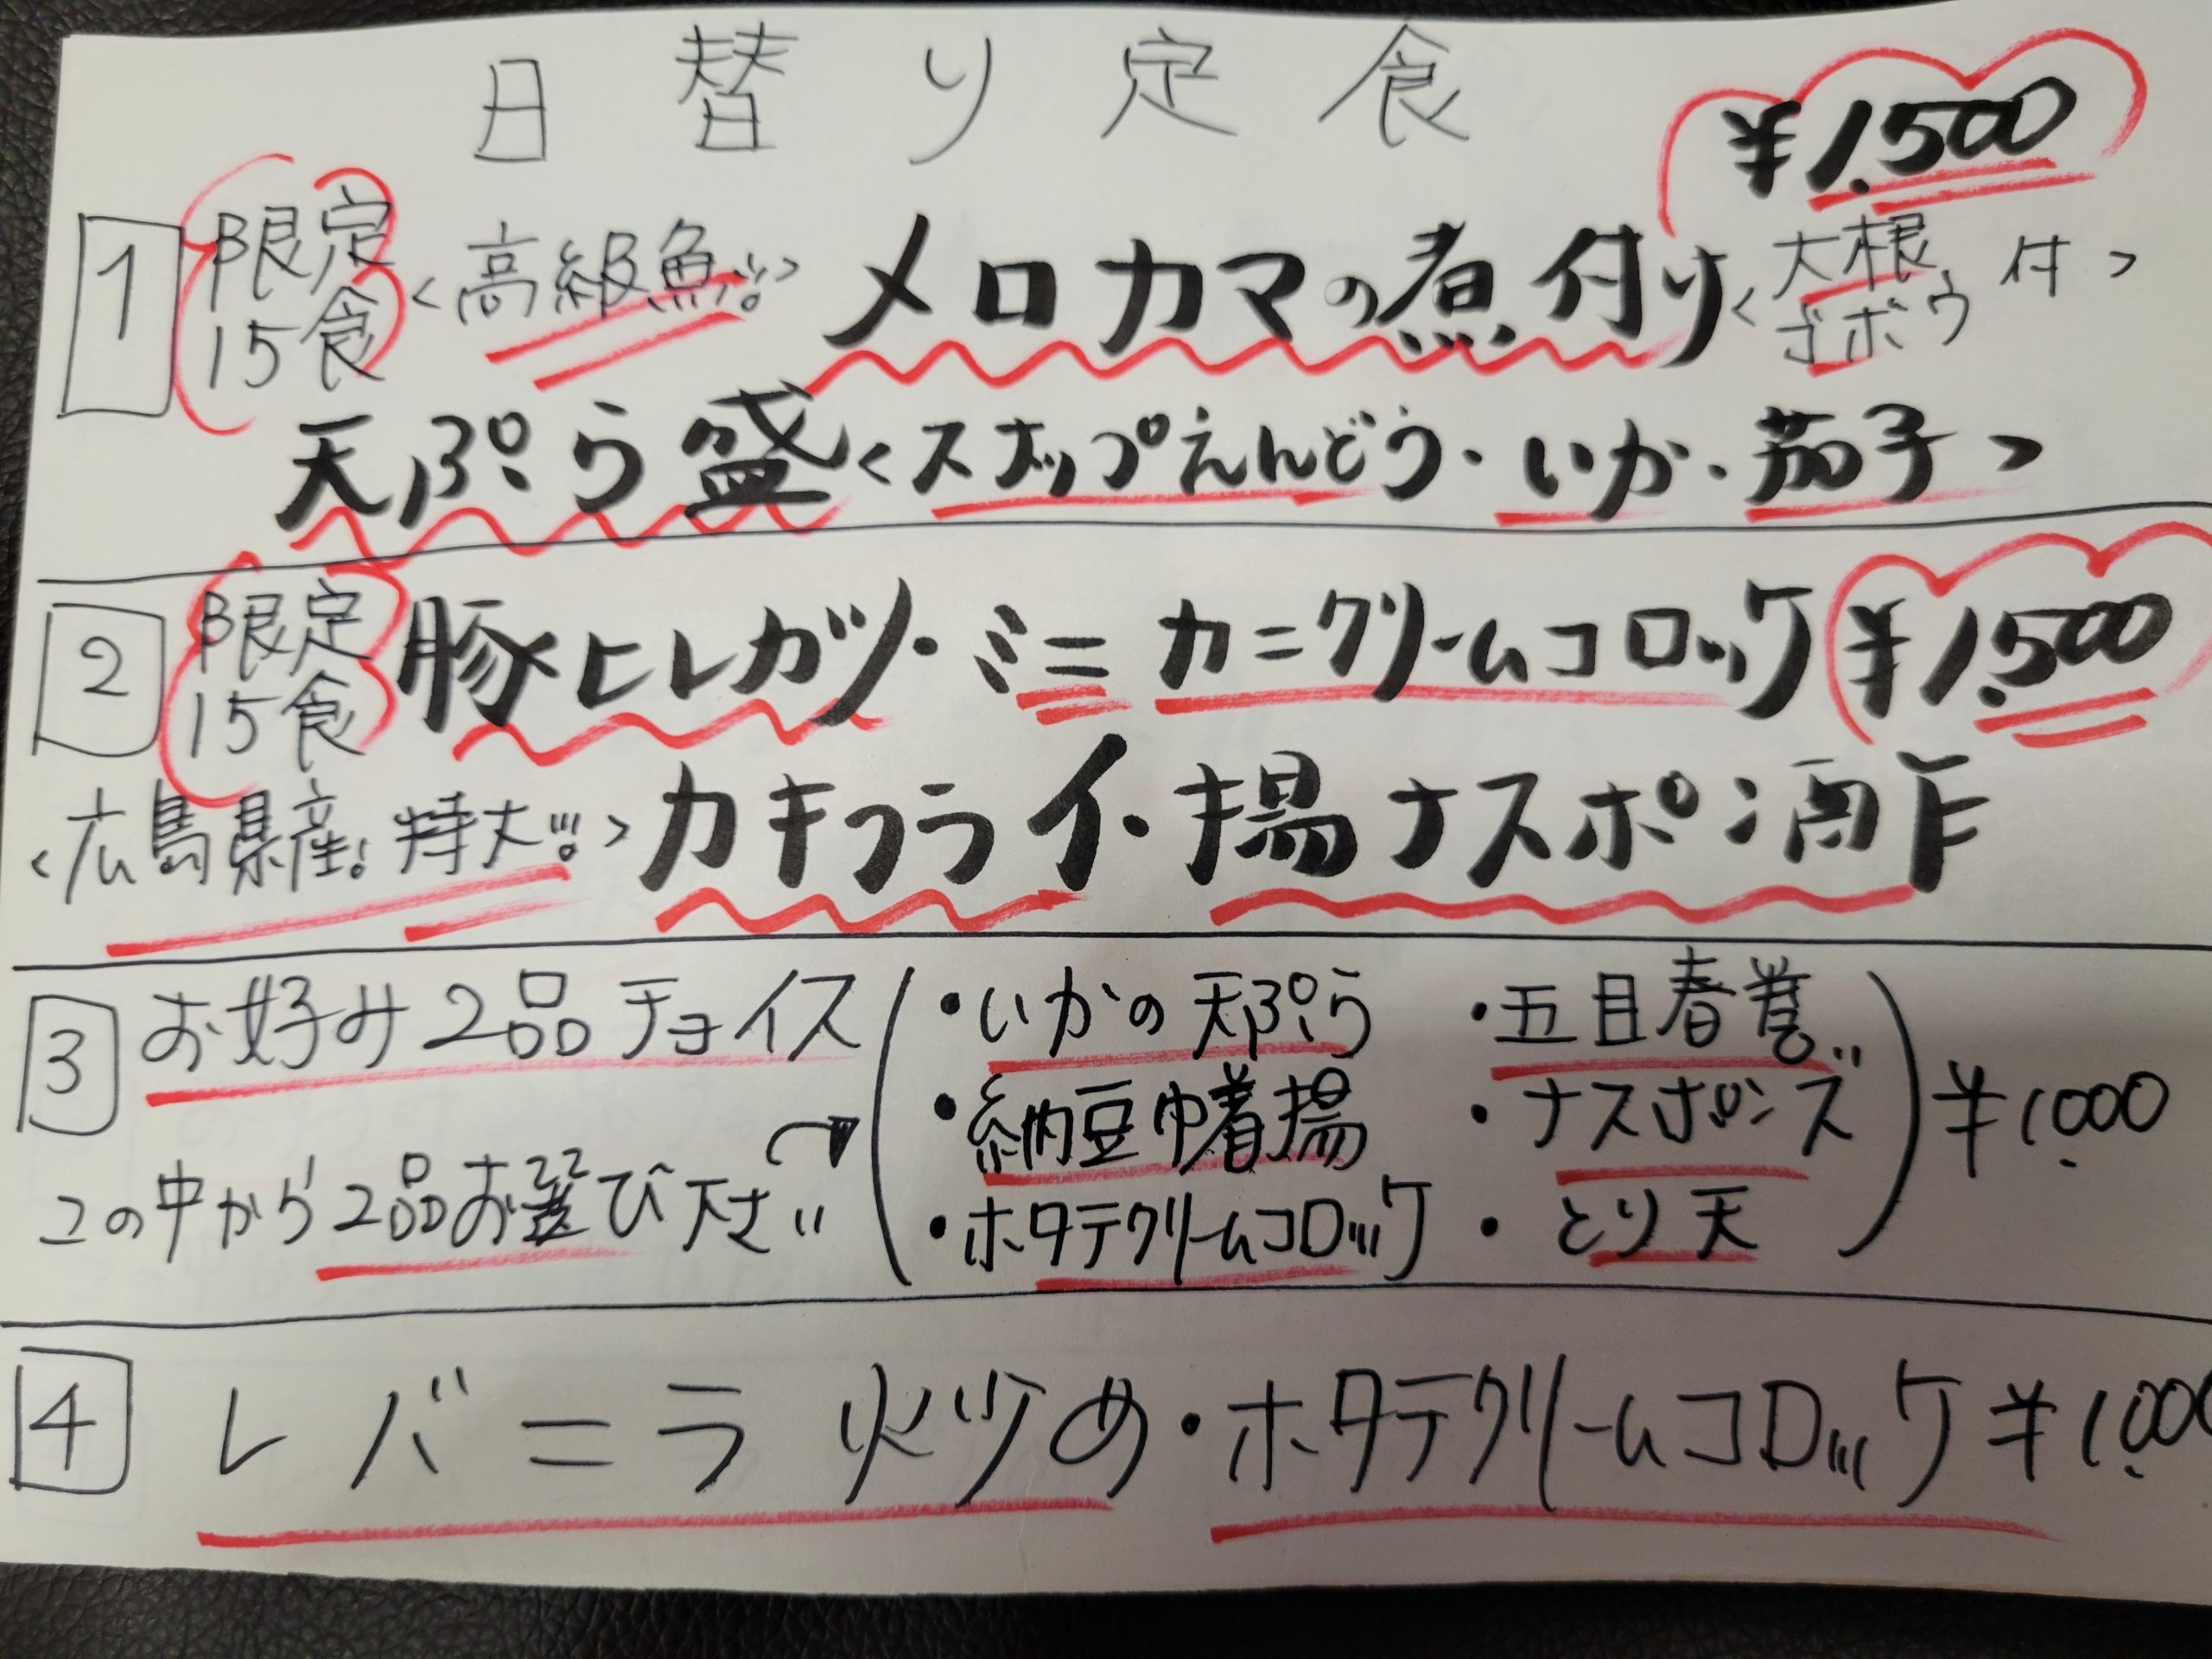 日替り定食
¥1,500
1 限定15食 <高級魚!!> メロカマの煮付け <大根 ゴボウ 付>
天ぷら盛 <スナップえんどう・いか・茄子>
2 限定15食 豚ヒレカツ・ミニカニクリームコロッケ ¥1,500
<広島県産!特大!!!> カキフライ・揚ナスポン酢
3 お好み2品チョイス
この中から2品お選び下さい
・いかの天ぷら ・五目春巻
・納豆巾着揚 ・ナスポンズ
・ホタテクリームコロッケ ・とり天
¥1,000
4 レバニラ炒め・ホタテクリームコロッケ ¥1,000